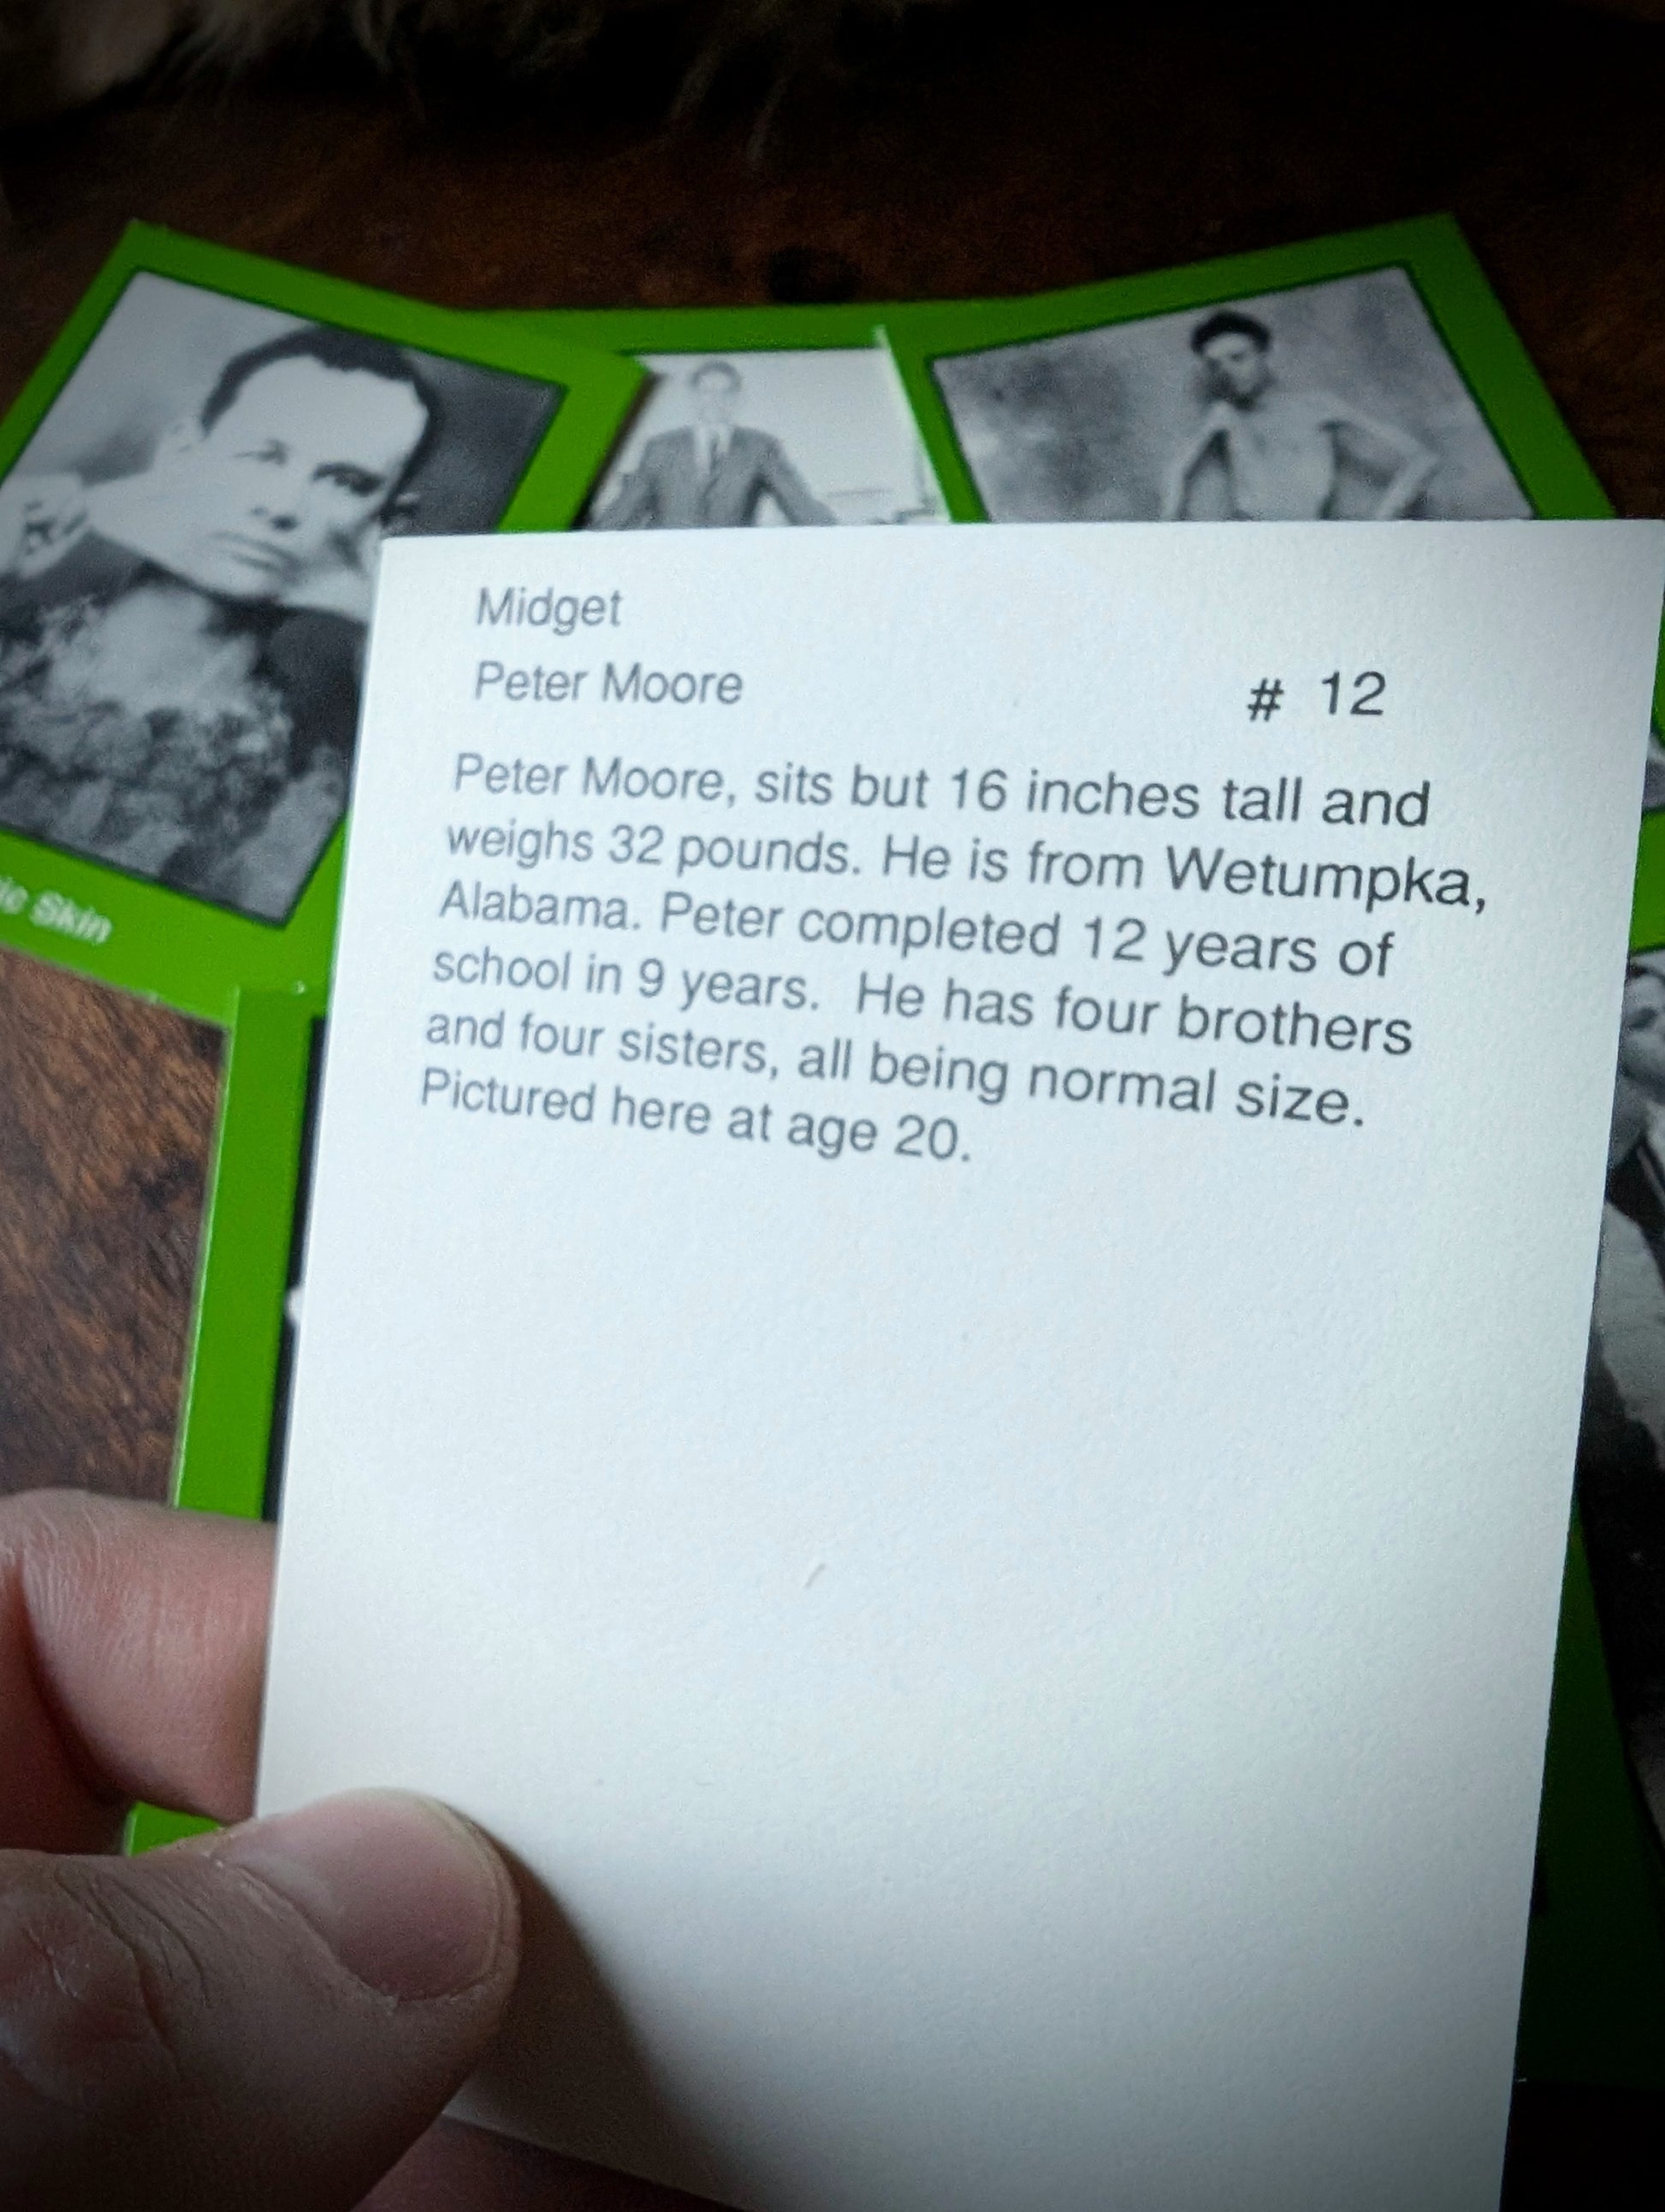 Midget
Peter Moore
# 12
Peter Moore, sits but 16 inches tall and
weighs 32 pounds. He is from Wetumpka,
Alabama. Peter completed 12 years of
school in 9 years. He has four brothers
and four sisters, all being normal size.
Pictured here at age 20.
Skin